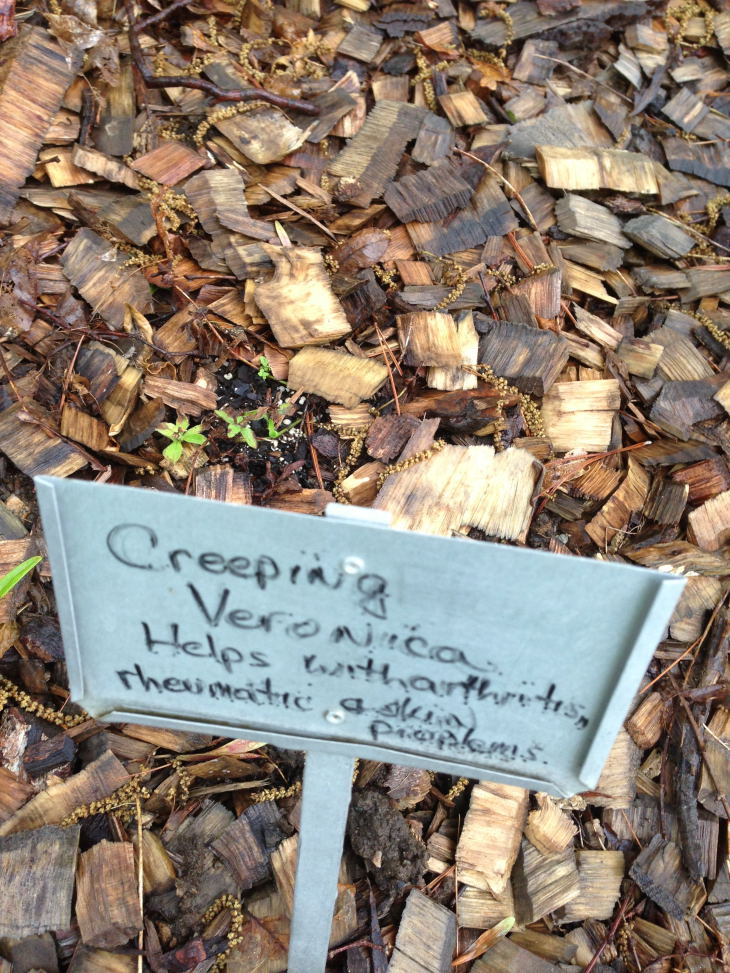 Creeping
Veronica
Helps with arthritis,
rheumatic & skin
problems.